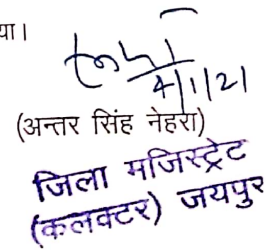 या।
4/1/21
(अन्तर सिंह नेहरा)
जिला मजिस्ट्रेट
(कलक्टर) जयपुर